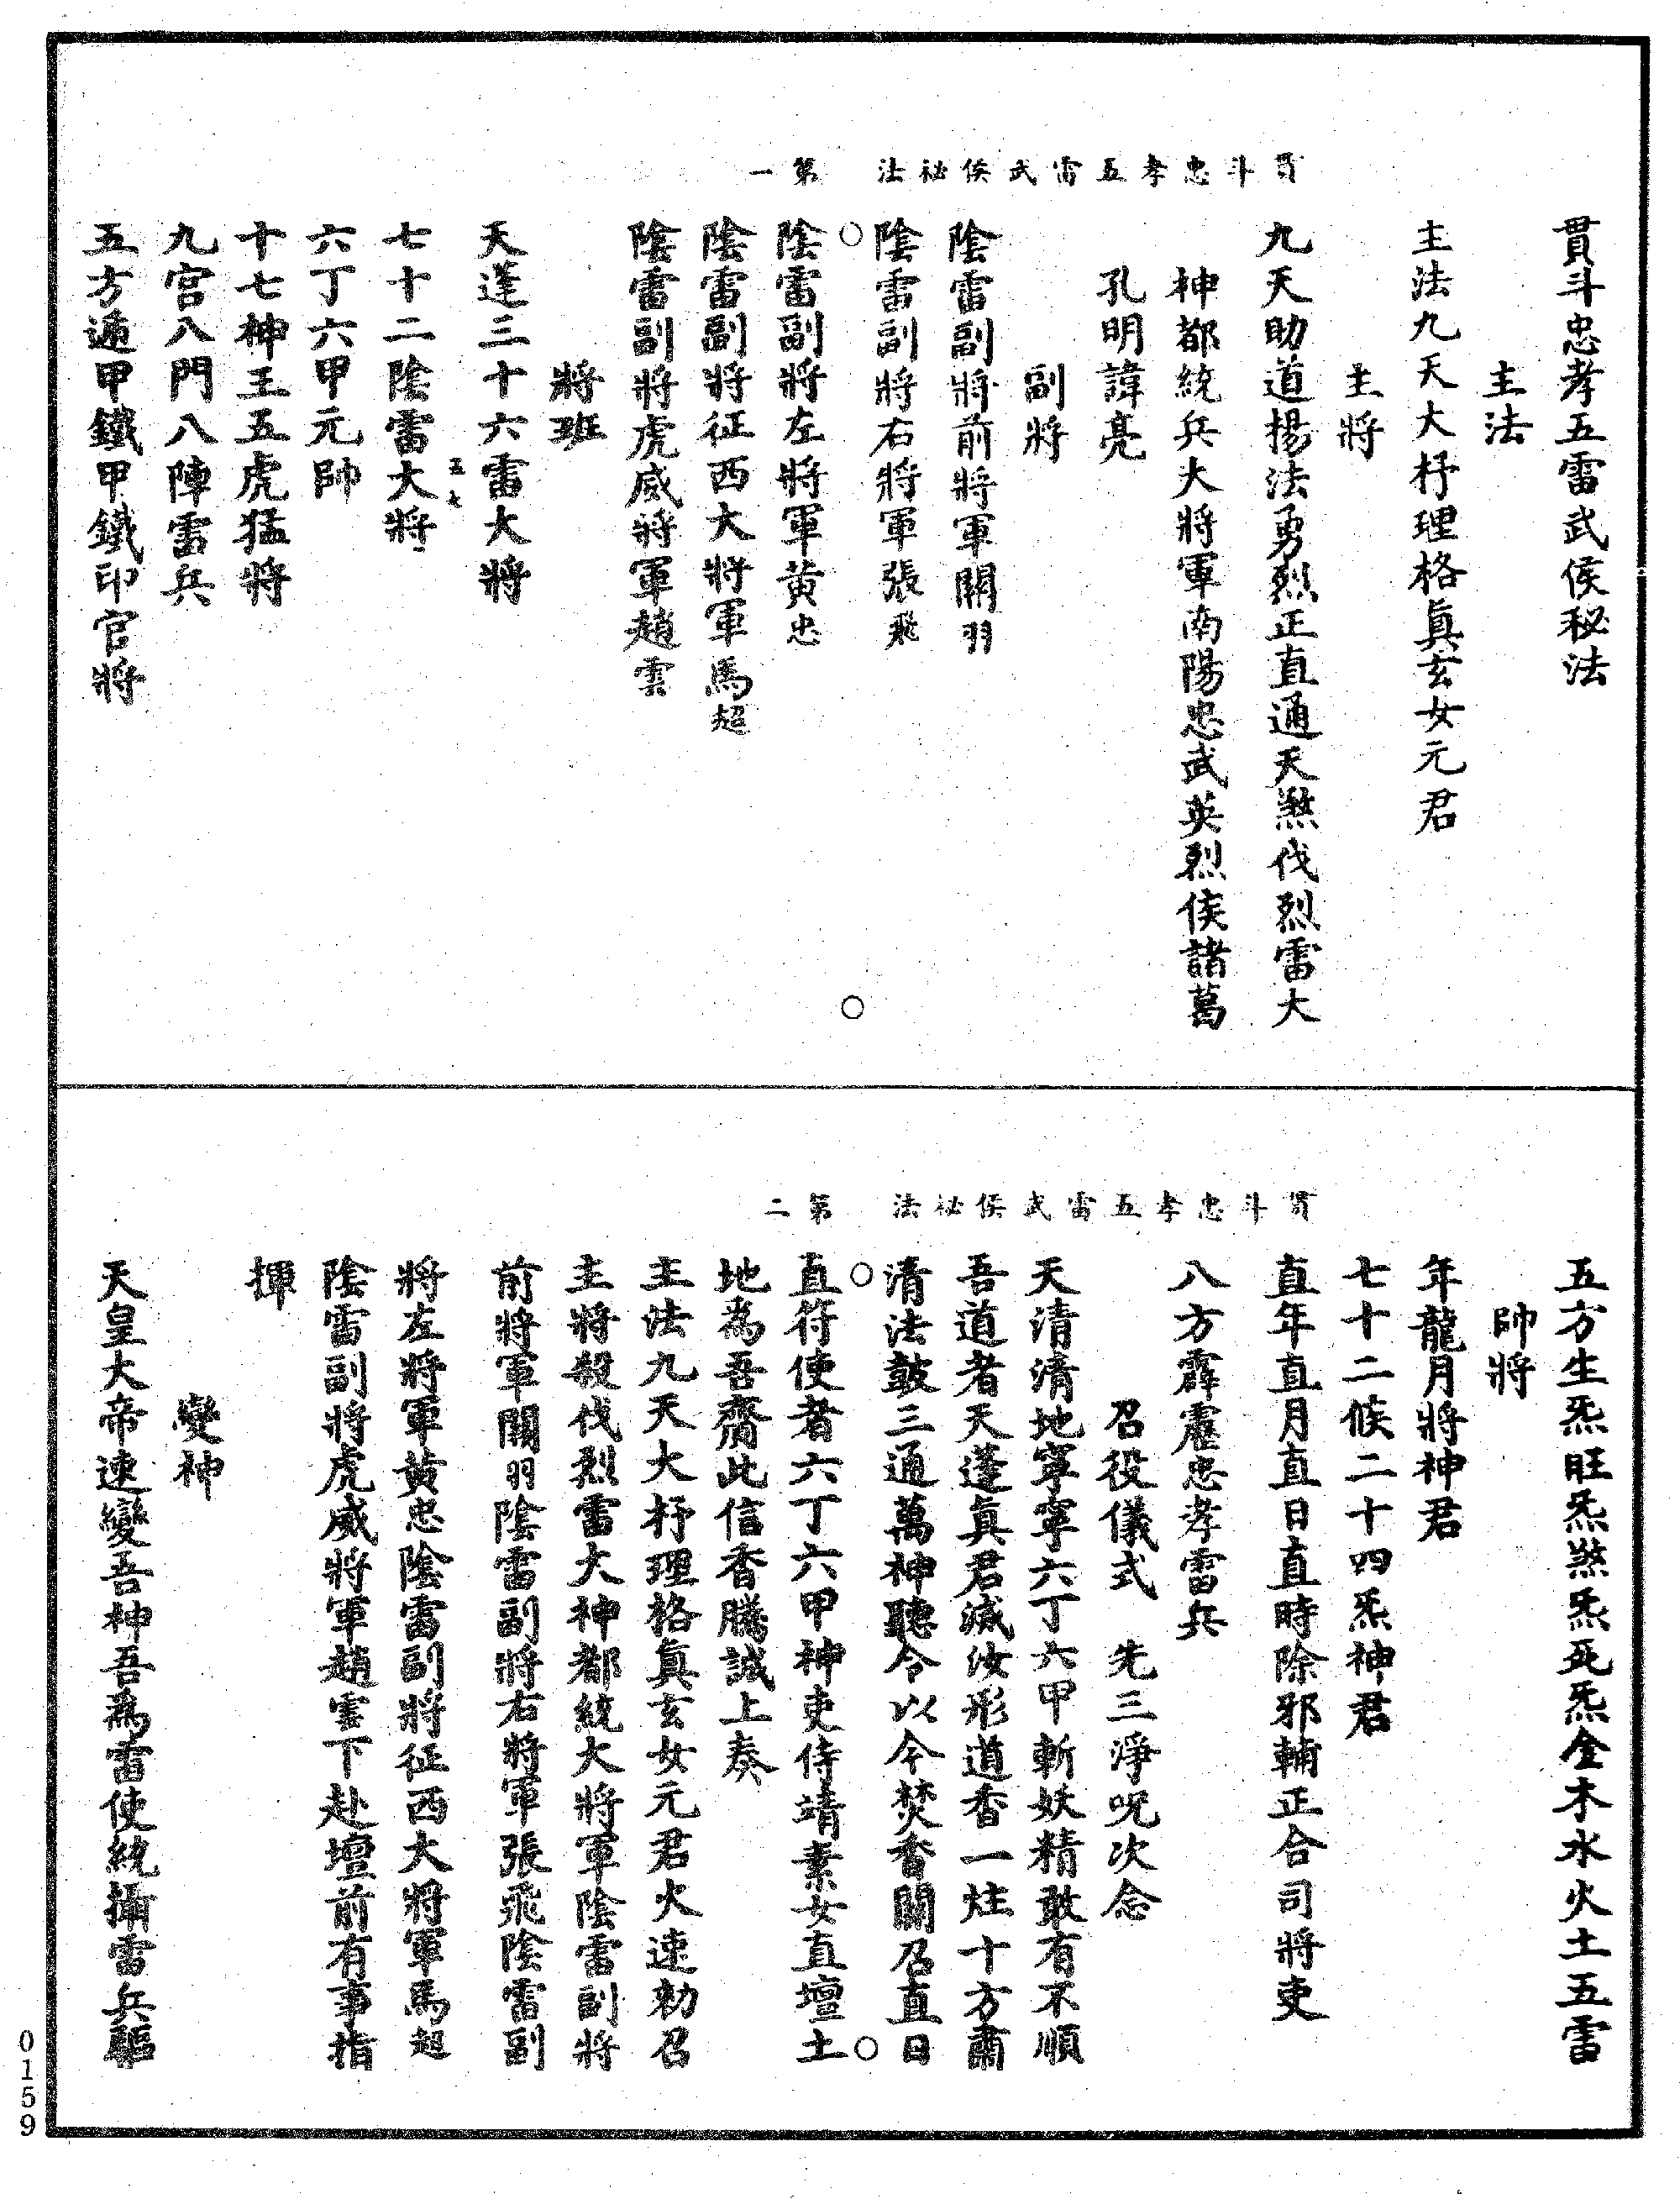 貫斗忠孝五雷武侯祕法　第一
貫斗忠孝五雷武侯秘法
主法
主法九天大杼理格眞玄女元君
主將
九天助道揚法勇烈正直通天煞伐烈雷大
神都統兵大將軍南陽忠武英烈侯諸葛
孔明諱亮
副將
陰雷副將前將軍關羽
陰雷副將右將軍張飛
陰雷副將左將軍黄忠
陰雷副將征西大將軍馬超
陰雷副將虎威將軍趙雲
將班
天蓬三十六雷大將
七十二陰雷大將
六丁六甲元帥
十七神王五虎猛將
九宮八門八陣雷兵
五方遁甲鐵甲鐵印官將
貫斗忠孝五雷武侯祕法　第二
五方生炁旺炁煞炁死炁金木水火土五雷
帥將
年龍月將神君
七十二候二十四炁神君
直年直月直日直時除邪輔正合司將吏
八方霹靂忠孝雷兵
召役儀式　先三淨呪次念
天清清地寧寧六丁六甲斬妖精敢有不順
吾道者天蓬眞君滅汝形道香一炷十方肅
清法鼓三通萬神聽令以今焚香關召直日
直符使者六丁六甲神吏侍靖素女直壇土
地爲吾齎此信香騰誠上奏
主法九天大杼理格眞玄女元君火速勑召
主將殺伐烈雷大神都統大將軍陰雷副將
前將軍關羽陰雷副將右將軍張飛陰雷副
將左將軍黄忠陰雷副將征西大將軍馬超
陰雷副將虎威將軍趙雲下赴壇前有事指
揮
變神
天皇大帝速變吾神吾爲雷使統攝雷兵驅
0159